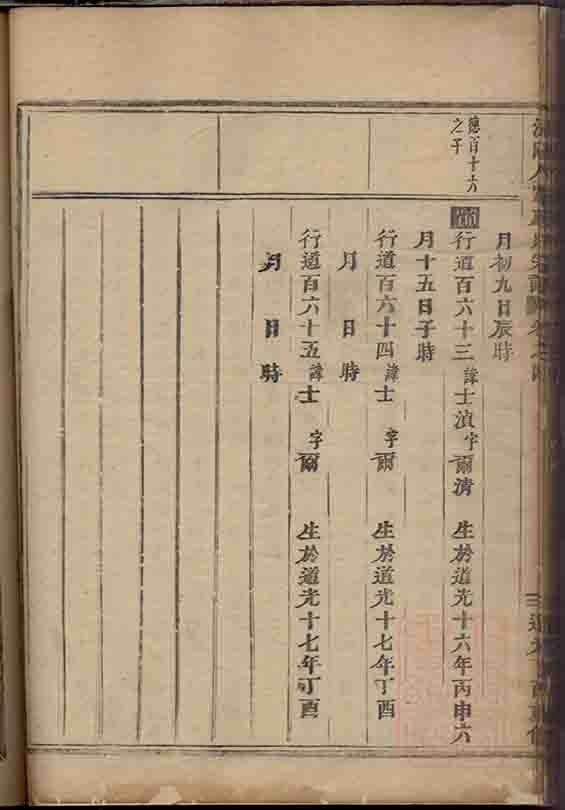 月初九日辰時
德百十六
之子
行道百六十三 諱士湞 字爾清 生於道光十六年丙申六
月十五日子時
行道百六十四 諱士 字爾 生於道光十七年丁酉
月 日 時
行道百六十五 諱士 字爾 生於道光十七年丁酉
月 日 時